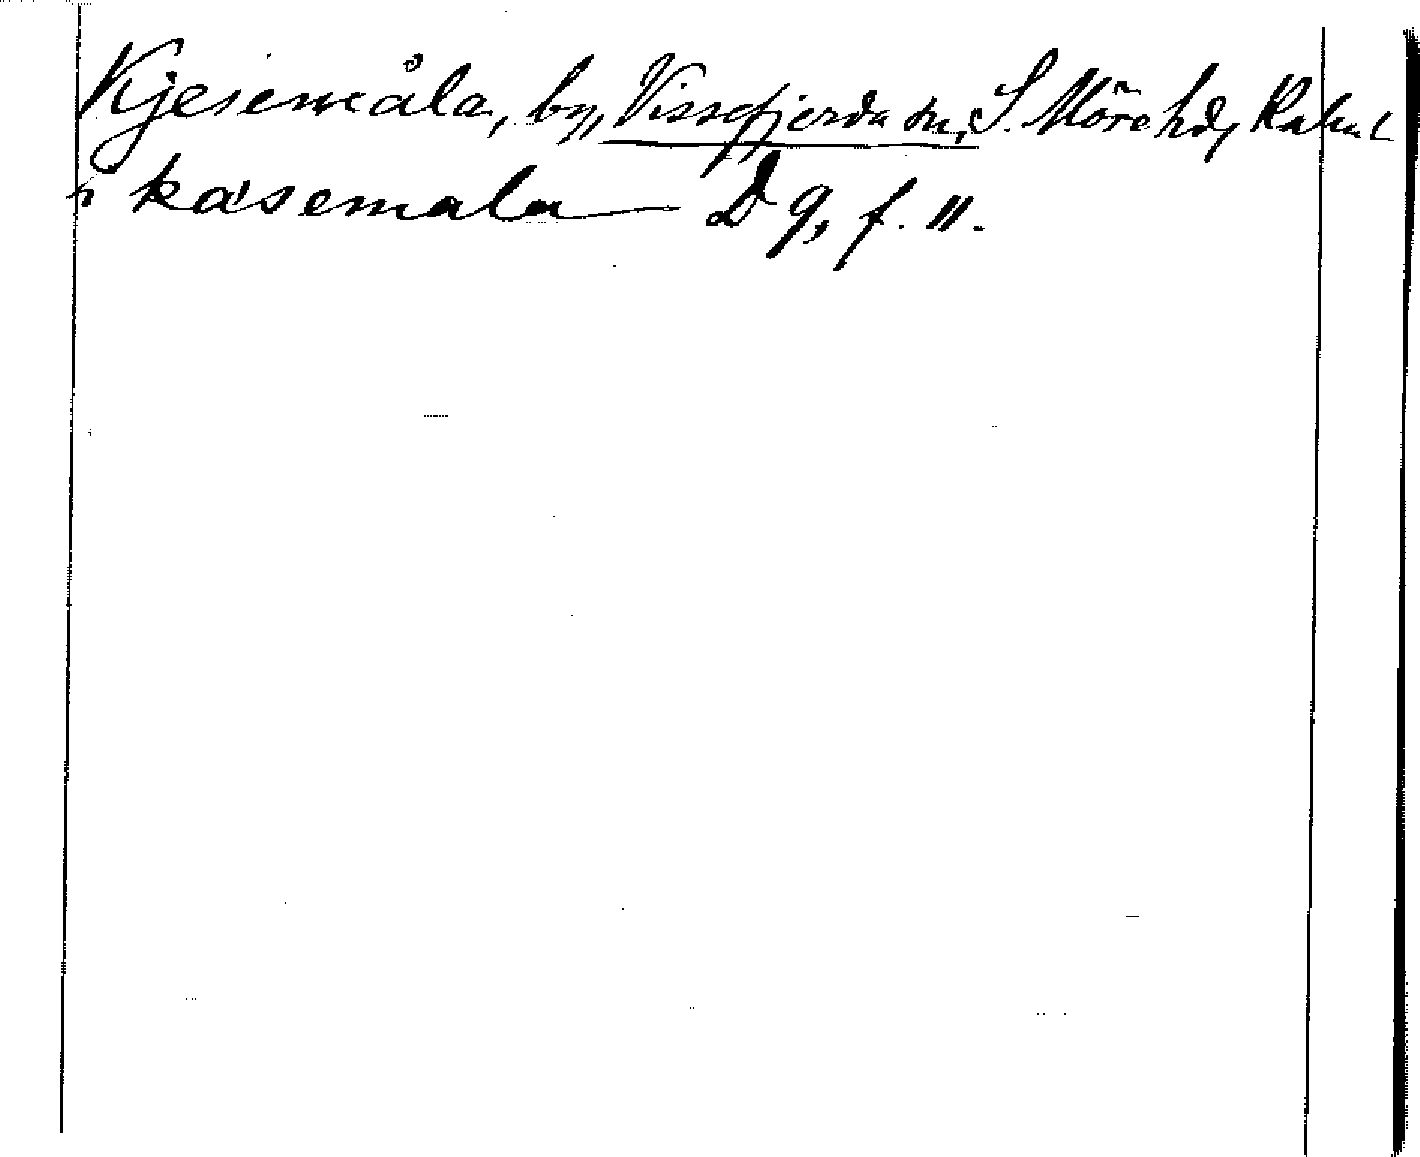 Kjesemåla, by, Vissefjerda sn, S. Möre hd, Kalm. l
i kæsemala D 9, f. 11.